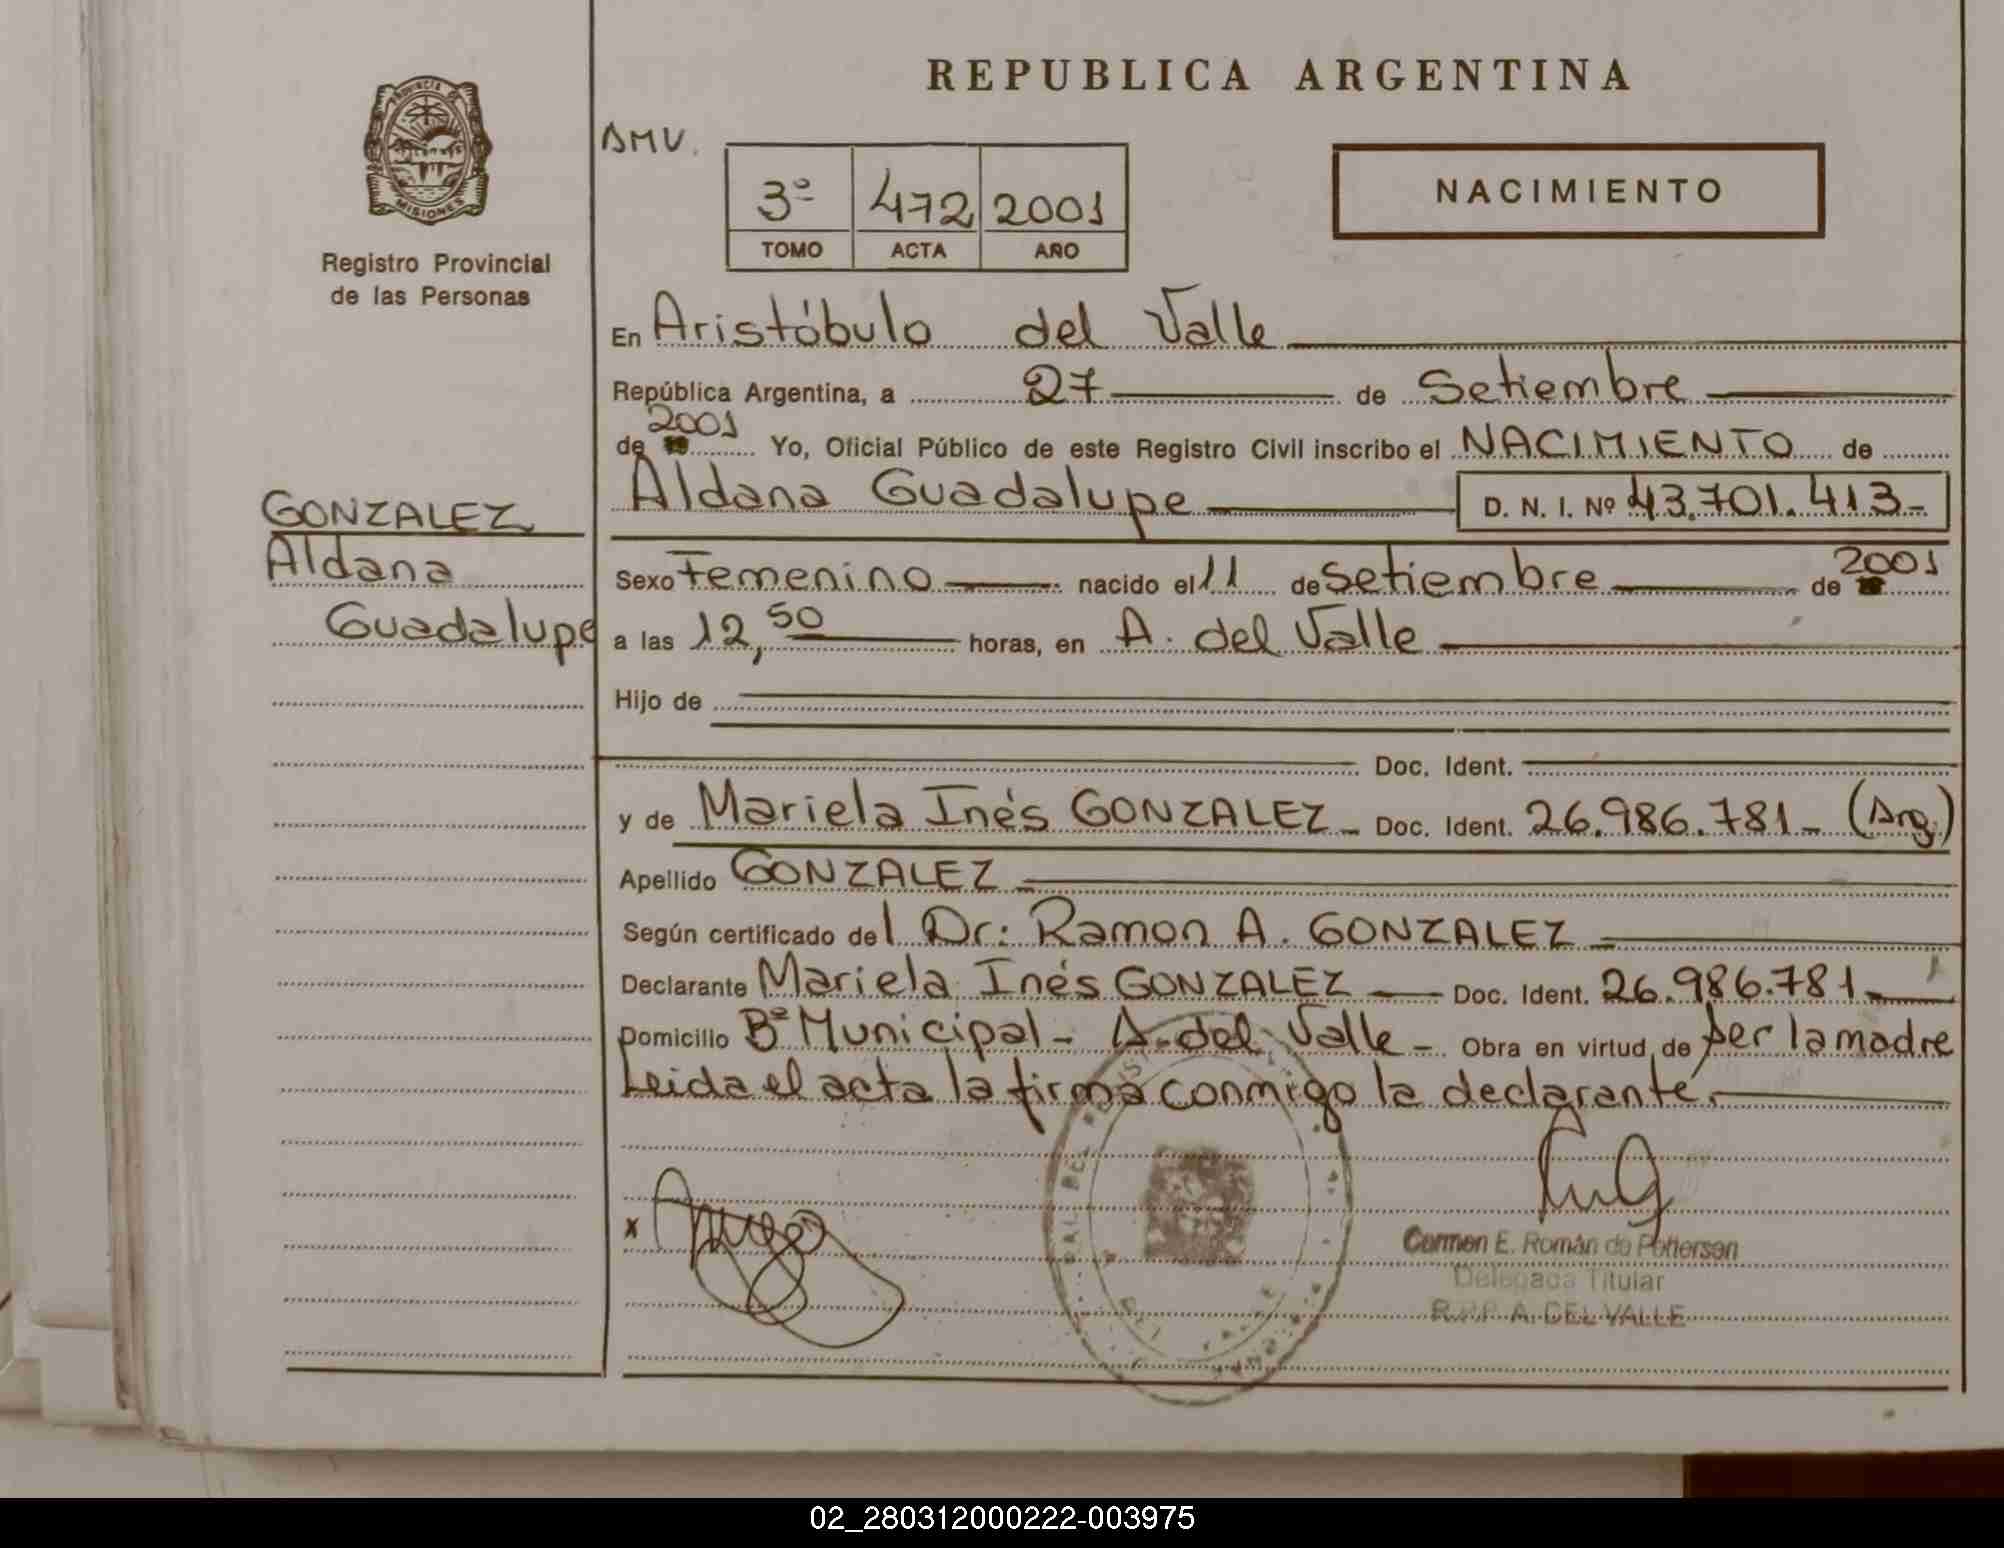 REPUBLICA ARGENTINA
PROVINCIA D
MISIONES
Registro Provincial
de las Personas
AMV.
3º 472 2001
TOMO ACTA AÑO
NACIMIENTO
En Aristóbulo del Valle
República Argentina, a 27 de Setiembre
de 2001 Yo, Oficial Público de este Registro Civil inscribo el NACIMIENTO de
Aldana Guadalupe D. N. I. Nº 43.701.413-
GONZALEZ
Aldana
Guadalupe
Sexo Femenino nacido el 11 de Setiembre de 2001
a las 12,50 horas, en A. del Valle
Hijo de
Doc. Ident.
y de Mariela Inés GONZALEZ- Doc. Ident. 26.986.781- (Arg.)
Apellido GONZALEZ
Según certificado del Dr: Ramon A. GONZALEZ
Declarante Mariela Inés GONZALEZ Doc. Ident. 26.986.781-
Domicilio Bº Municipal- A. del Valle- Obra en virtud de ser la madre
Leida el acta la firma conmigo la declarante.
x
Carmen E. Román de Pettersen
Delegada Titular
R.P.P. A. DEL VALLE
02_280312000222-003975